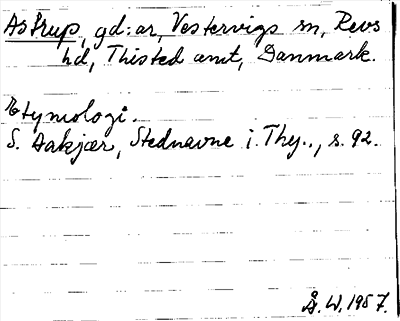 Astrup, gd:ar, Vestervigs sn, Revs
hd, Thisted amt, Danmark.
Etymologi.
S. Aakjær, Stednavne i Thy.., s. 92.
Å. W. 1957.